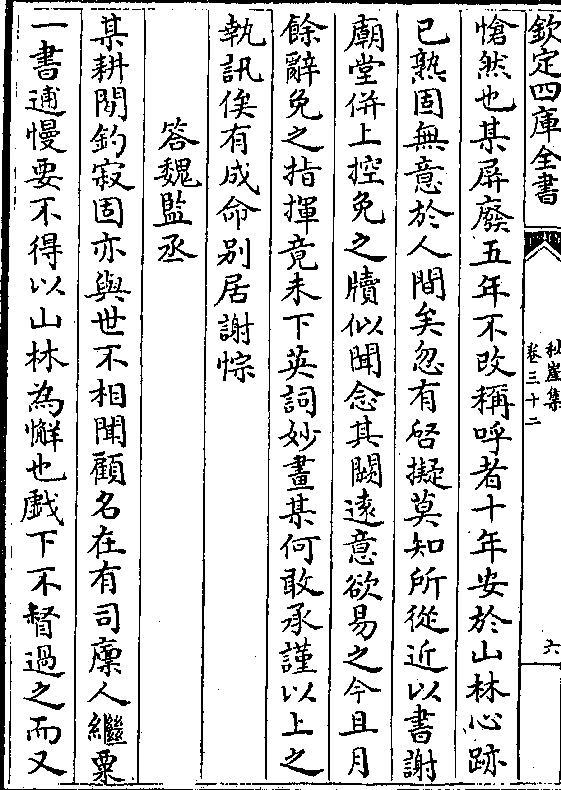 欽定四庫全書
秋崖集
卷三十二
六
愴然也某屏廢五年不改稱呼者十年安於山林心跡
已熟固無意於人間矣忽有啓擬莫知所從近以書謝
廟堂併上控免之牘似聞念其闕遠意欲易之今且月
餘辭免之指揮竟未下英詞妙畫某何敢承謹以上之
執訊俟有成命别居謝悰
答魏監丞
某耕閒釣寂固亦與世不相聞顧名在有司廪人繼粟
一書逋慢要不得以山林為懈也戲下不督過之而又